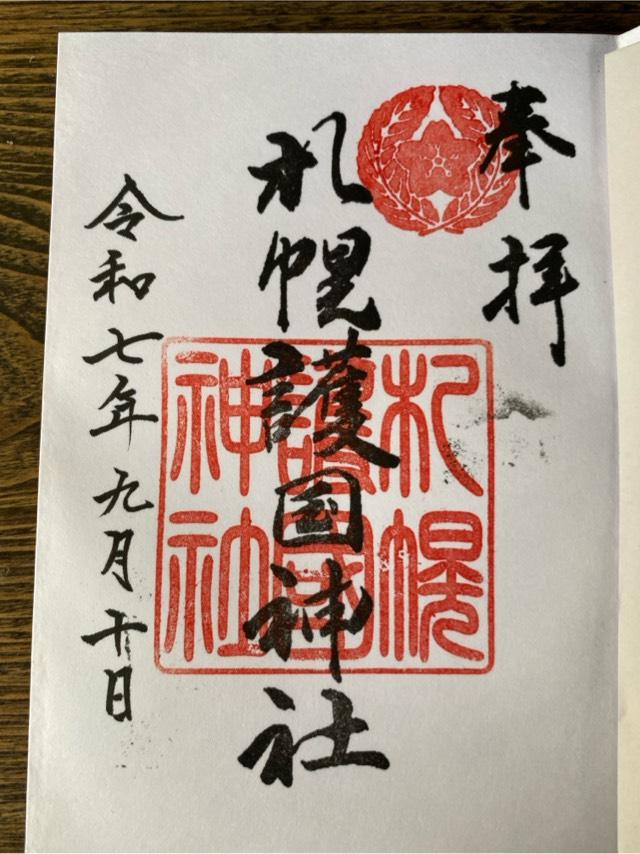 奉拝
札幌護国神社
札幌
護國
神社
令和七年九月十日